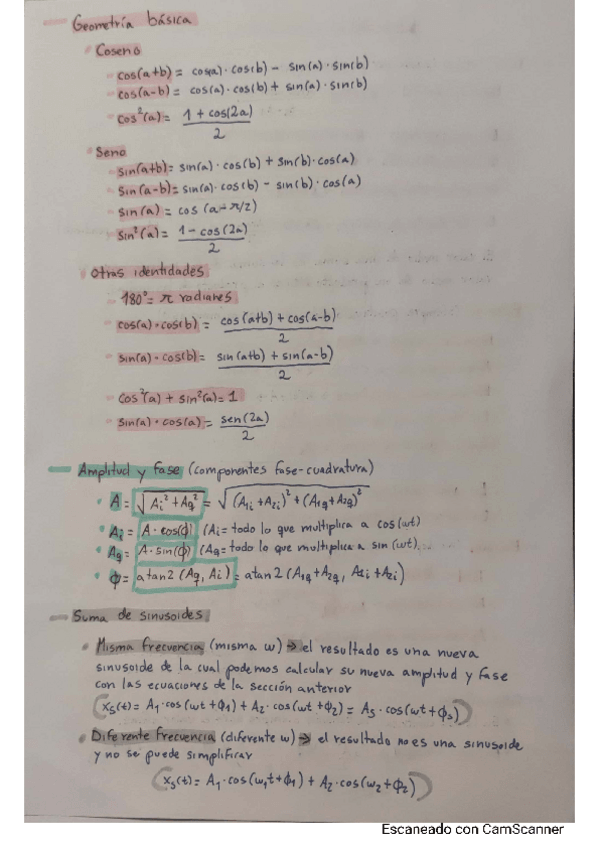 Geometría básica
Coseno
cos(a+b) = cos(a)·cos(b) - sin(a)·sin(b)
cos(a-b) = cos(a)·cos(b) + sin(a)·sin(b)
cos²(a) = (1 + cos(2a))/2
Seno
sin(a+b) = sin(a)·cos(b) + sin(b)·cos(a)
sin(a-b) = sin(a)·cos(b) - sin(b)·cos(a)
sin(a) = cos(a-π/2)
sin²(a) = (1 - cos(2a))/2
Otras identidades
180° = π radianes
cos(a)·cos(b) = (cos(a+b) + cos(a-b))/2
sin(a)·cos(b) = (sin(a+b) + sin(a-b))/2
cos²(a) + sin²(a) = 1
sin(a)·cos(a) = sen(2a)/2
Amplitud y fase (componentes fase-cuadratura)
A = √(Ai² + Aq²) = √((A1i + A2i)² + (A1q + A2q)²)
Ai = A·cos(ϕ) (Ai = todo lo que multiplica a cos(wt)
Aq = A·sin(ϕ) (Aq = todo lo que multiplica a sin(wt)
ϕ = atan2(Aq, Ai) = atan2(A1q + A2q, A1i + A2i)
Suma de sinusoides
Misma frecuencia (misma w) → el resultado es una nueva
sinusoide de la cual podemos calcular su nueva amplitud y fase
con las ecuaciones de la sección anterior
(xs(t) = A1·cos(wt + ϕ1) + A2·cos(wt + ϕ2) = A3·cos(wt + ϕ3))
Diferente frecuencia (diferente w) → el resultado no es una sinusoide
y no se puede simplificar
(xs(t) = A1·cos(w1t + ϕ1) + A2·cos(w2 + ϕ2))
Escaneado con CamScanner